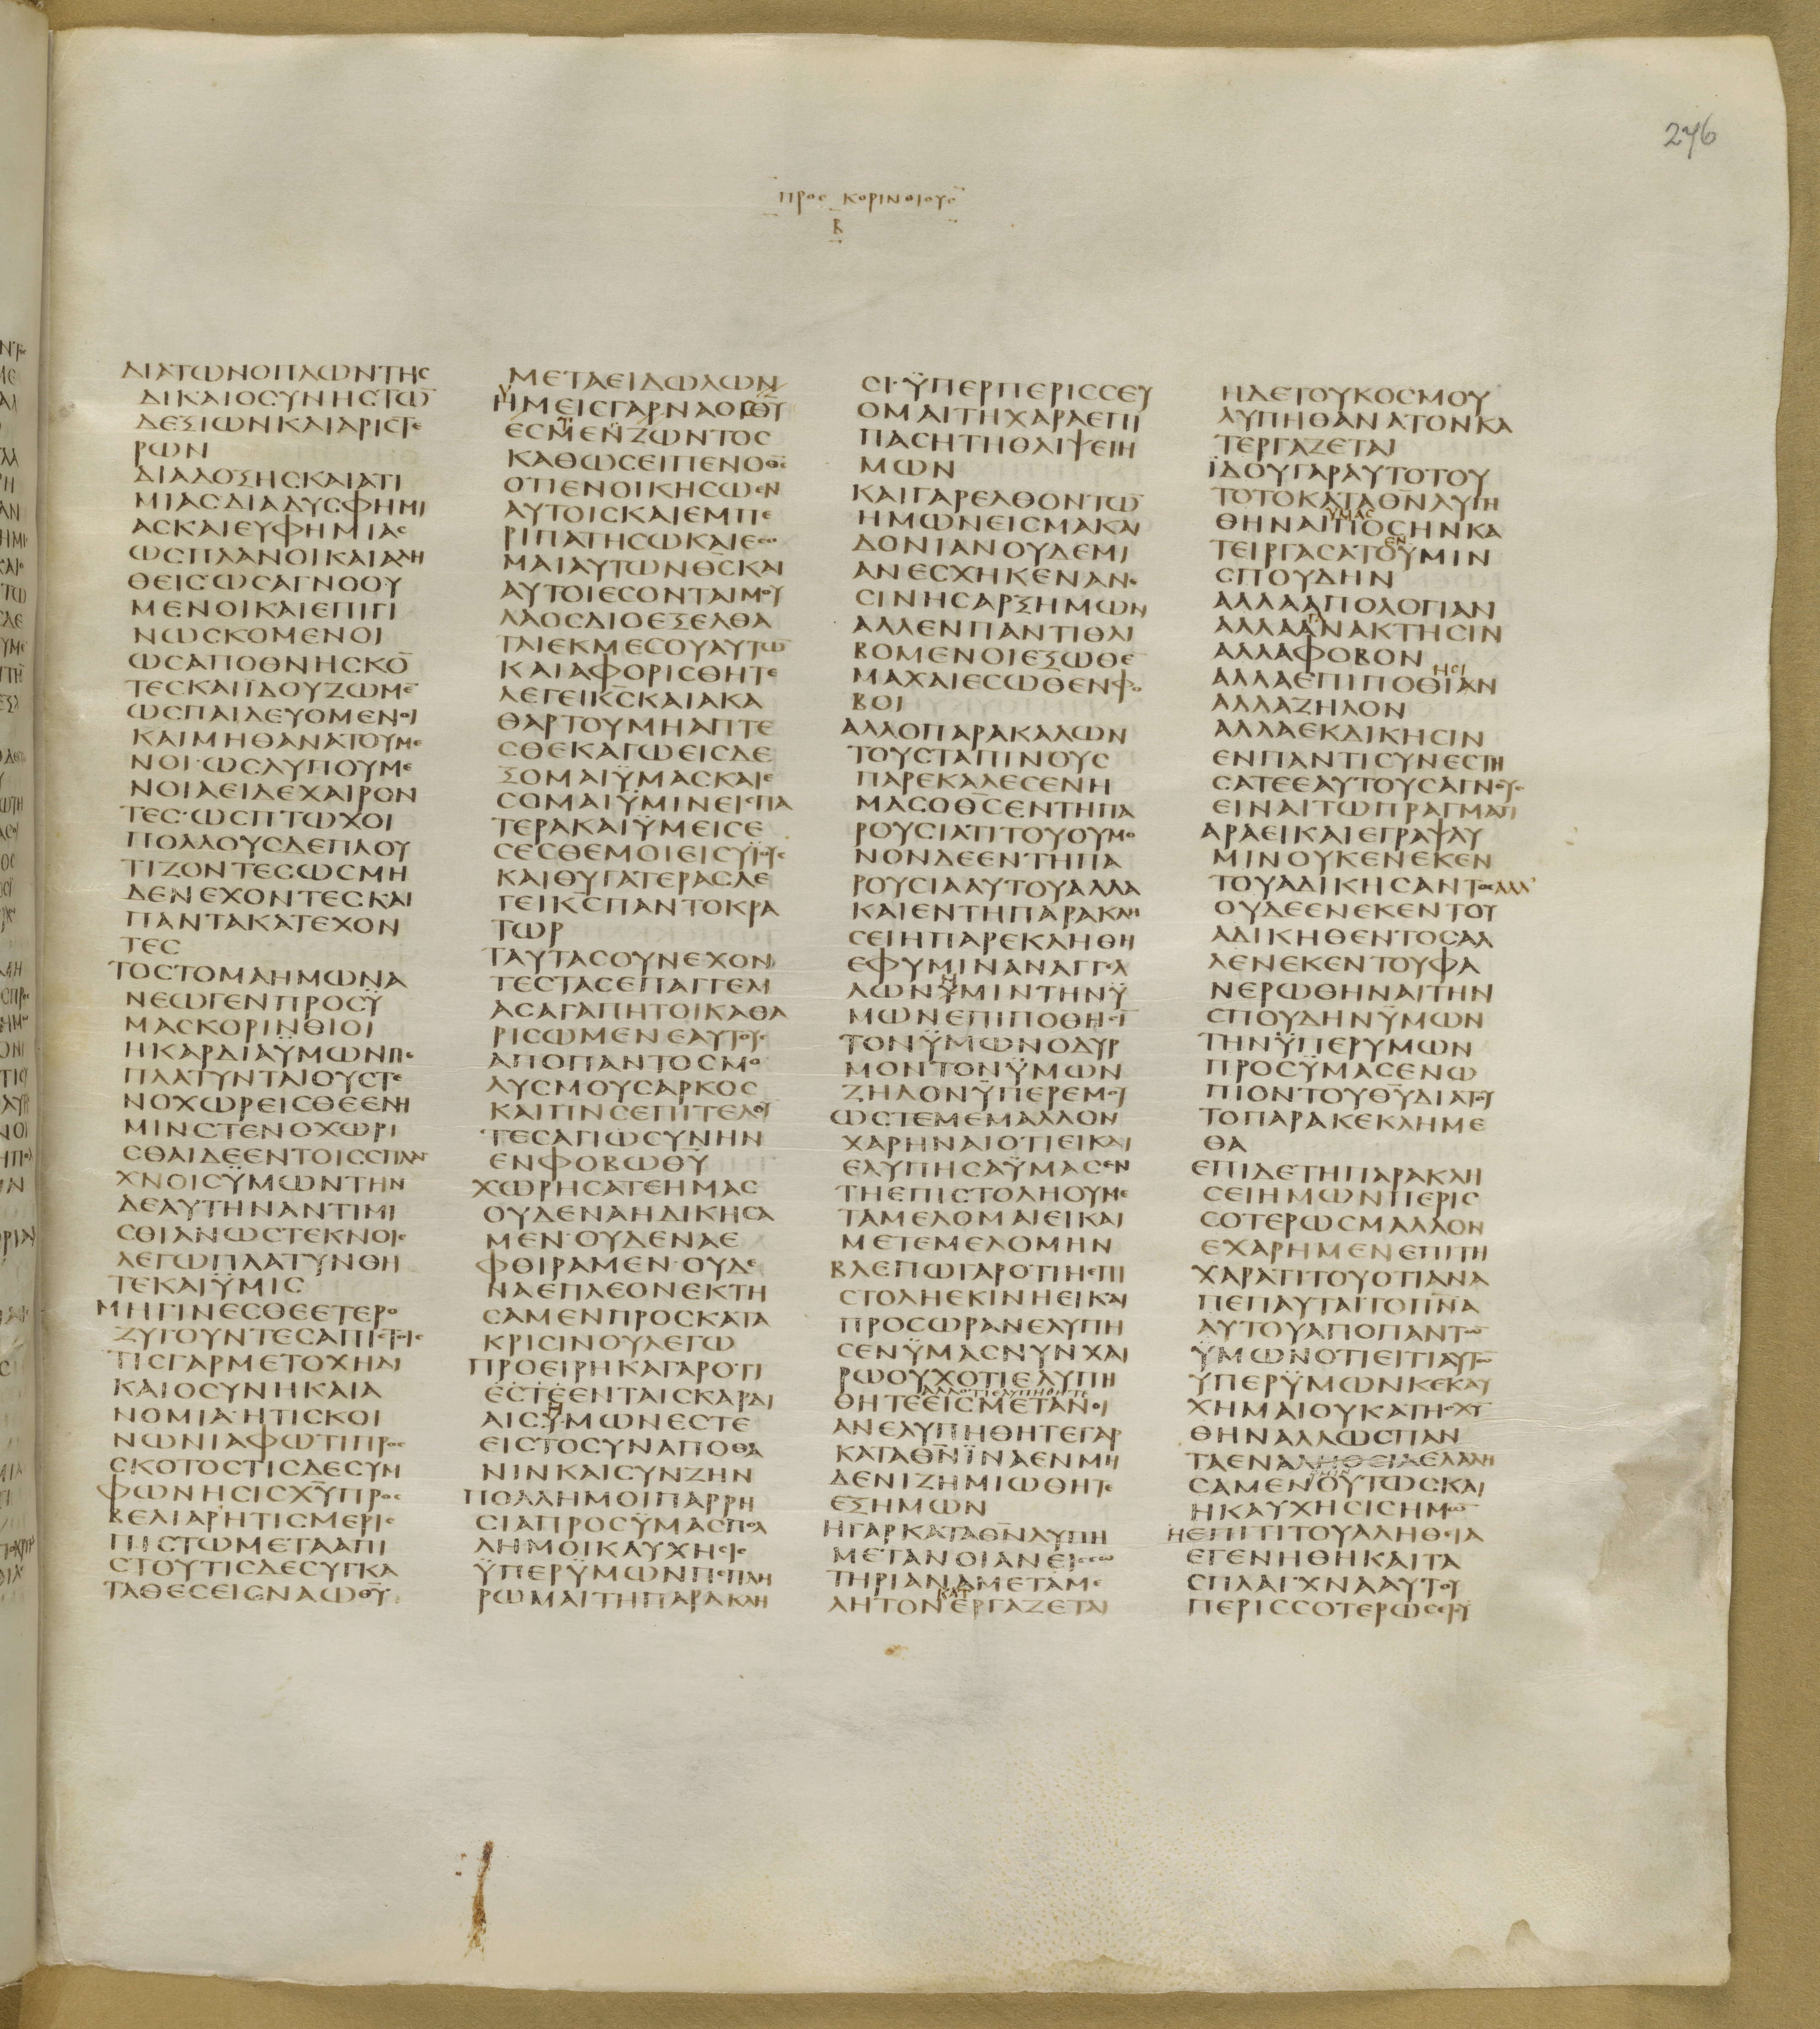 276
ΠΡΟΣ ΚΟΡΙΝΘΙΟΥΣ
Β
ΔΙΑΤΩΝΟΠΛΩΝΤΗC
ΔΙΚΑΙΟCΥΝΗCΤΩ̅
ΔΕΞΙΩΝΚΑΙΑΡΙCΤΕ
ΡΩΝ
ΔΙΑΔΟΞΗCΚΑΙΑΤΙ
ΜΙΑCΔΙΑΔΥCΦΗΜΙ
ΑCΚΑΙΕΥΦΗΜΙΑC
ΩCΠΛΑΝΟΙΚΑΙΑΛΗ
ΘΕΙC·ΩCΑΓΝΟΟΥ
ΜΕΝΟΙΚΑΙΕΠΙΓΙ
ΝΩCΚΟΜΕΝΟΙ
ΩCΑΠΟΘΝΗCΚΟ̅
ΤΕCΚΑΙΪΔΟΥΖΩΜΕ̅
ΩCΠΑΙΔΕΥΟΜΕΝΟΙ
ΚΑΙΜΗΘΑΝΑΤΟΥΜΕ
ΝΟΙ·ΩCΛΥΠΟΥΜΕ
ΝΟΙΑΕΙΔΕΧΑΙΡΟΝ
ΤΕC·ΩCΠΤΩΧΟΙ
ΠΟΛΛΟΥCΔΕΠΛΟΥ
ΤΙΖΟΝΤΕCΩCΜΗ
ΔΕΝΕΧΟΝΤΕCΚΑΙ
ΠΑΝΤΑΚΑΤΕΧΟΝ
ΤΕC
ΤΟCΤΟΜΑΗΜΩΝΑ
ΝΕΩΓΕΝΠΡΟCΫ
ΜΑCΚΟΡΙΝΘΙΟΙ
ΗΚΑΡΔΙΑΫΜΩΝΠΕ
ΠΛΑΤΥΝΤΑΙΟΥCΤΕ
ΝΟΧΩΡΕΙCΘΕΕΝΗ
ΜΙΝCΤΕΝΟΧΩΡΙ
CΘΑΙΔΕΕΝΤΟΙCCΠΛΑΝ
ΧΝΟΙCΫΜΩΝΤΗΝ
ΔΕΑΥΤΗΝΑΝΤΙΜΙ
CΘΙΑΝΩCΤΕΚΝΟΙC
ΛΕΓΩΠΛΑΤΥΝΘΗ
ΤΕΚΑΙΫΜΙC
ΜΗΓΙΝΕCΘΕΕΤΕΡΟ
ΖΥΓΟΥΝΤΕCΑΠΙCΤΟΙC
ΤΙCΓΑΡΜΕΤΟΧΗΔΙ
ΚΑΙΟCΥΝΗΚΑΙΑ
ΝΟΜΙΑ·ΗΤΙCΚΟΙ
ΝΩΝΙΑΦΩΤΙΠΡΟC
CΚΟΤΟCΤΙCΔΕCΥΜ
ΦΩΝΗCΙCΧ̅Υ̅ΠΡΟC
ΒΕΛΙΑΡΗΤΙCΜΕΡΙC
ΠΙCΤΩΜΕΤΑΑΠΙ
CΤΟΥΤΙCΔΕCΥΓΚΑ
ΤΑΘΕCΕΙCΝΑΩΘ̅Υ̅
ΜΕΤΑΕΙΔΩΛΩΝ
ΗΜΕΙCΓΑΡΝΑΟΙΘ̅Υ̅
ΕCΜΕΝΖΩΝΤΟC
ΚΑΘΩCΕΙΠΕΝΟΘ̅C̅
ΟΤΙΕΝΟΙΚΗCΩΕΝ
ΑΥΤΟΙCΚΑΙΕΜΠΕ
ΡΙΠΑΤΗCΩΚΑΙΕCΟ
ΜΑΙΑΥΤΩΝΘ̅C̅ΚΑΙ
ΑΥΤΟΙΕCΟΝΤΑΙΜΟΥ
ΛΑΟCΔΙΟΕΞΕΛΘΑ
ΤΑΙΕΚΜΕCΟΥΑΥΤΩ̅
ΚΑΙΑΦΟΡΙCΘΗΤΕ
ΛΕΓΕΙΚ̅C̅ΚΑΙΑΚΑ
ΘΑΡΤΟΥΜΗΑΠΤΕ
CΘΕΚΑΓΩΕΙCΔΕ
ΞΟΜΑΙΫΜΑCΚΑΙΕ
CΟΜΑΙΫΜΙΝΕΙCΠΑ
ΤΕΡΑΚΑΙΫΜΕΙCΕ
CΕCΘΕΜΟΙΕΙCΫΙΟΥC
ΚΑΙΘΥΓΑΤΕΡΑCΛΕ
ΓΕΙΚ̅C̅ΠΑΝΤΟΚΡΑ
ΤΩΡ
ΤΑΥΤΑCΟΥΝΕΧΟΝ
ΤΕCΤΑCΕΠΑΓΓΕΛΙ
ΑCΑΓΑΠΗΤΟΙΚΑΘΑ
ΡΙCΩΜΕΝΕΑΥΤΟΥC
ΑΠΟΠΑΝΤΟCΜΟ
ΛΥCΜΟΥCΑΡΚΟC
ΚΑΙΠ̅Ν̅C̅ΕΠΙΤΕΛΟΥ
ΤΕCΑΓΙΩCΥΝΗΝ
ΕΝΦΟΒΩΘ̅Υ̅
ΧΩΡΗCΑΤΕΗΜΑC
ΟΥΔΕΝΑΗΔΙΚΗCΑ
ΜΕΝ·ΟΥΔΕΝΑΕ
ΦΘΙΡΑΜΕΝ·ΟΥΔΕ
ΝΑΕΠΛΕΟΝΕΚΤΗ
CΑΜΕΝΠΡΟCΚΑΤΑ
ΚΡΙCΙΝΟΥΛΕΓΩ
ΠΡΟΕΙΡΗΚΑΓΑΡΟΤΙ
ΕCΤΕΕΝΤΑΙCΚΑΡΔΙ
ΑΙCΫΜΩΝΕCΤΕ
ΕΙCΤΟCΥΝΑΠΟΘΑ
ΝΙΝΚΑΙCΥΝΖΗΝ
ΠΟΛΛΗΜΟΙΠΑΡΡΗ
CΙΑΠΡΟCΫΜΑCΠΟΛ
ΛΗΜΟΙΚΑΥΧΗCΙC
ΫΠΕΡΫΜΩΝΠΕΠΛΗ
ΡΩΜΑΙΤΗΠΑΡΑΚΛΗ
CΙ·ΫΠΕΡΠΕΡΙCCΕΥ
ΟΜΑΙΤΗΧΑΡΑΕΠΙ
ΠΑCΗΤΗΘΛΙΨΕΙΗ
ΜΩΝ
ΚΑΙΓΑΡΕΛΘΟΝΤΩ̅
ΗΜΩΝΕΙCΜΑΚΑΙ
ΔΟΝΙΑΝΟΥΔΕΜΙ
ΑΝΕCΧΗΚΕΝΑΝΕ
CΙΝΗCΑΡΞΗΜΩΝ
ΑΛΛΕΝΠΑΝΤΙΘΛΙ
ΒΟΜΕΝΟΙΕΞΩΘΕ̅
ΜΑΧΑΙΕCΩΘΕΝΦΟ
ΒΟΙ
ΑΛΛΟΠΑΡΑΚΑΛΩΝ
ΤΟΥCΤΑΠΙΝΟΥC
ΠΑΡΕΚΑΛΕCΕΝΗ
ΜΑCΟΘ̅C̅ΕΝΤΗΠΑ
ΡΟΥCΙΑΤΙΤΟΥΟΥΜΟ
ΝΟΝΔΕΕΝΤΗΠΑ
ΡΟΥCΙΑΑΥΤΟΥΑΛΛΑ
ΚΑΙΕΝΤΗΠΑΡΑΚΛΗ
CΕΙΗΠΑΡΕΚΛΗΘΗ
ΕΦΥΜΙΝΑΝΑΓΓΕΛ
ΛΩΝΫΜΙΝΤΗΝΫ
ΜΩΝΕΠΙΠΟΘΗCΙ̅
ΤΟΝΫΜΩΝΟΔΥΡ
ΜΟΝΤΟΝΫΜΩΝ
ΖΗΛΟΝΫΠΕΡΕΜΟΥ
ΩCΤΕΜΕΜΑΛΛΟΝ
ΧΑΡΗΝΑΙΟΤΙΕΙΚΑΙ
ΕΛΥΠΗCΑΫΜΑCΕΝ
ΤΗΕΠΙCΤΟΛΗΟΥΜΕ
ΤΑΜΕΛΟΜΑΙΕΙΚΑΙ
ΜΕΤΕΜΕΛΟΜΗΝ
ΒΛΕΠΩΓΑΡΟΤΙΗΕΠΙ
CΤΟΛΗΕΚΙΝΗΕΙΚΑΙ
ΠΡΟCΩΡΑΝΕΛΥΠΗ
CΕΝΫΜΑCΝΥΝΧΑΙ
ΡΩΟΥΧΟΤΙΕΛΥΠΗ
ΑΛΛΟΤΙΕΛΥΠΗΘΗΤΕ
ΘΗΤΕΕΙCΜΕΤΑΝΟΙ
ΑΝΕΛΥΠΗΘΗΤΕΓΑΡ
ΚΑΤΑΘ̅Ν̅ΪΝΑΕΝΜΗ
ΔΕΝΙΖΗΜΙΩΘΗΤΕ
ΕΞΗΜΩΝ
ΗΓΑΡΚΑΤΑΘ̅Ν̅ΛΥΠΗ
ΜΕΤΑΝΟΙΑΝΕΙCCΩ
ΤΗΡΙΑΝΑΜΕΤΑΜΕ
ΚΑΤ
ΛΗΤΟΝΕΡΓΑΖΕΤΑΙ
ΗΔΕΤΟΥΚΟCΜΟΥ
ΛΥΠΗΘΑΝΑΤΟΝΚΑ
ΤΕΡΓΑΖΕΤΑΙ
ΪΔΟΥΓΑΡΑΥΤΟΤΟΥ
ΤΟΤΟΚΑΤΑΘ̅Ν̅ΛΥΠΗ
ΥΜΑC
ΘΗΝΑΙΠΟCΗΝΚΑ
ΕΝ
ΤΕΙΡΓΑCΑΤΟΫΜΙΝ
CΠΟΥΔΗΝ
ΑΛΛΑΑΠΟΛΟΓΙΑΝ
ΑΛΛΑΑΝΑΚΤΗCΙΝ
ΑΛΛΑΦΟΒΟΝ
ΗCΙ
ΑΛΛΑΕΠΙΠΟΘΙΑΝ
ΑΛΛΑΖΗΛΟΝ
ΑΛΛΑΕΚΔΙΚΗCΙΝ
ΕΝΠΑΝΤΙCΥΝΕCΤΗ
CΑΤΕΕΑΥΤΟΥCΑΓΝΟΥC
ΕΙΝΑΙΤΩΠΡΑΓΜΑΤΙ
ΑΡΑΕΙΚΑΙΕΓΡΑΨΑΥ
ΜΙΝΟΥΚΕΝΕΚΕΝ
ΤΟΥΑΔΙΚΗCΑΝΤΟCΑΛΛ
ΟΥΔΕΕΝΕΚΕΝΤΟΥ
ΑΔΙΚΗΘΕΝΤΟCΑΛ
ΛΕΝΕΚΕΝΤΟΥΦΑ
ΝΕΡΩΘΗΝΑΙΤΗΝ
CΠΟΥΔΗΝΫΜΩΝ
ΤΗΝΫΠΕΡΥΜΩΝ
ΠΡΟCΫΜΑCΕΝΩ
ΠΙΟΝΤΟΥΘ̅Υ̅ΔΙΑΤΟΥ
ΤΟΠΑΡΑΚΕΚΛΗΜΕ
ΘΑ
ΕΠΙΔΕΤΗΠΑΡΑΚΛΗ
CΕΙΗΜΩΝΠΕΡΙC
CΟΤΕΡΩCΜΑΛΛΟΝ
ΕΧΑΡΗΜΕΝΕΠΙΤΗ
ΧΑΡΑΤΙΤΟΥΟΤΙΑΝΑ
ΠΕΠΑΥΤΑΙΤΟΠ̅Ν̅Α̅
ΑΥΤΟΥΑΠΟΠΑΝΤΩ̅
ΫΜΩΝΟΤΙΕΙΤΙΑΥΤΩ
ΥΠΕΡΫΜΩΝΚΕΚΑΥ
ΧΗΜΑΙΟΥΚΑΤΗCΧΥ̅
ΘΗΝΑΛΛΩCΠΑΝ
ΤΑΕΝΑΛΗΘΕΙΑΕΛΑΛΗ
CΑΜΕΝΟΥΤΩCΚΑΙ
ΗΚΑΥΧΗCΙCΗΜΩ̅
ΗΕΠΙΤΙΤΟΥΑΛΗΘΕΙΑ
ΕΓΕΝΗΘΗΚΑΙΤΑ
CΠΛΑΓΧΝΑΑΥΤΟΥ
ΠΕΡΙCCΟΤΕΡΩCΕΙCΫ